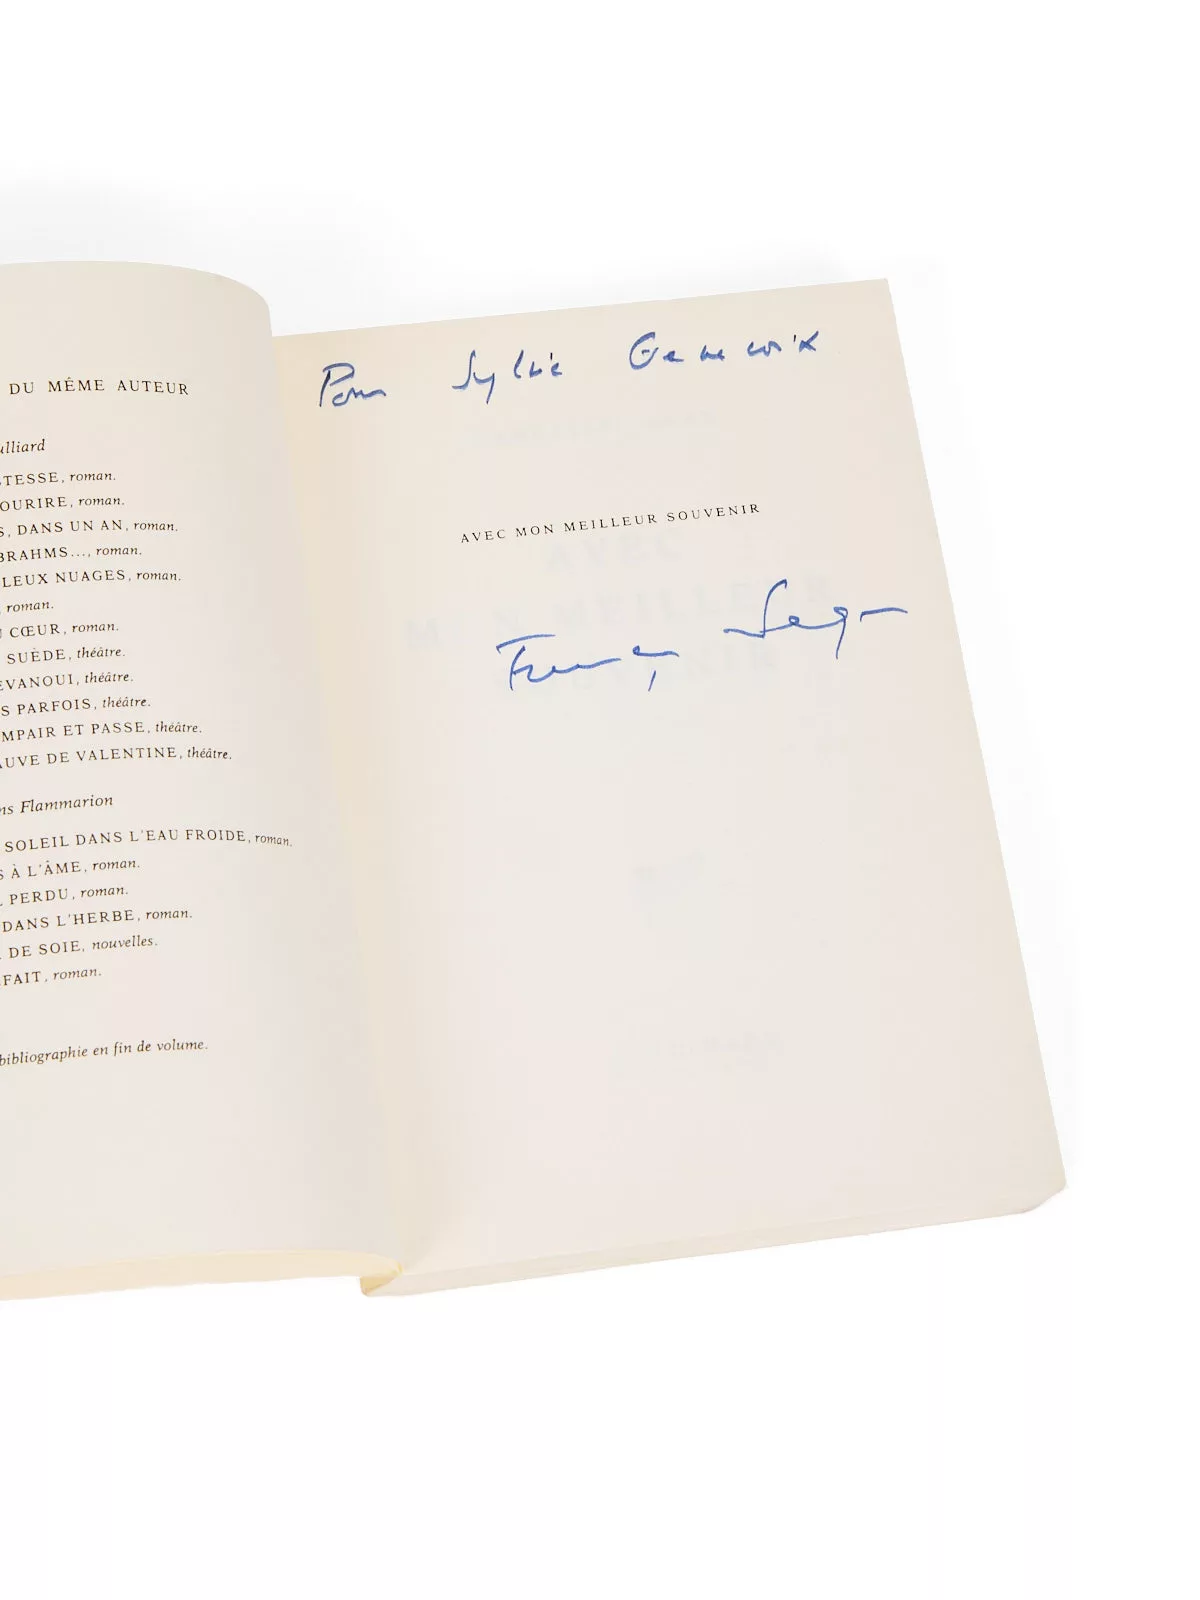 DU MÊME AUTEUR
ulliard
STESSE, roman.
OURIRE, roman.
S, DANS UN AN, roman.
BRAHMS..., roman.
LEUX NUAGES, roman.
, roman.
U CŒUR, roman.
SUÈDE, théâtre.
EVANOUI, théâtre.
S PARFOIS, théâtre.
MPAIR ET PASSE, théâtre.
AUVE DE VALENTINE, théâtre.
ns Flammarion
SOLEIL DANS L'EAU FROIDE, roman.
S À L'ÂME, roman.
L PERDU, roman.
DANS L'HERBE, roman.
DE SOIE, nouvelles.
FAIT, roman.
bibliographie en fin de volume.
Pour Sylvie Genevoix
AVEC MON MEILLEUR SOUVENIR
Françoise Sagan